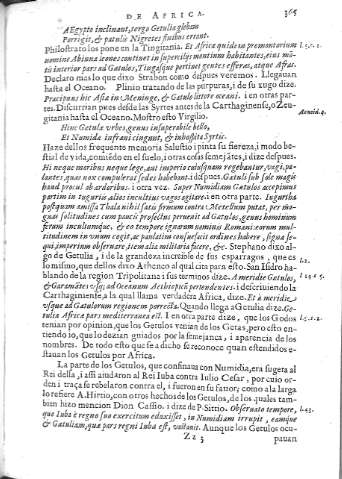 DE AFRICA. 365
AEgypto inclinant, tergo Getulia glebam
Porrigit, & patulis Nigretes finibus errant.
Philostrato los pone en la Tingitania. Et Africa quidem promontorium
nomine Abinna leones continet in supercilijs montium habitantes, eius
interior pars ad Getulos, Tingasque pertinet gentes efferas, atque Afras.
Declaro mas lo que dixo Strabon como despues veremos. Llegauan
hasta el Oceano. Plinio tratando de las purpuras, i de su xugo dize.
Præcipuus hic Asiæ in Meninge, & Getulo littore oceani. i en otras par-
tes. Discurrian pues desde las Syrtes antes de la Carthaginense, o Zeu-
gitania hasta el Oceano. Mostro esto Virgilio. Aeneid. 4.
Hinc Getulæ vrbes, genus insuperabile bello,
Et Numidæ infræni cingunt, & inhospita Syrtis.
Haze dellos frequente memoria Salustio i pinta su fiereza, i modo be-
stial de vida, comiēdo en el suelo, i otras cosas semejātes, i dize despues.
Hi neque moribus neque lege, aut imperio cuiusquam regebantur, vagi, pa-
lantes, quas nox compulerat sedes habebant. i despues. Getuli sub sole magis
haud procul ab ardoribus. i otra vez. Super Numidiam Getulos accepimus
partim in tugurijs alios incultius vagos agitare. i en otra parte. Iugurtha
postquam amissa Thala nihil satis firmum contra Metellum putat, per mag-
nas solitudines cum paucis profectus peruenit ad Getulos, genus hominum
ferum incultumque, & eo tempore ignarum nominis Romani: eorum mul-
titudinem in vnum cogit, ac paulatim consuefacit ordines habere, signa se-
qui, imperium obseruare, item alia militaria facere, &c. Stephano dixo al-
go de Getulia, i de la grandeza increible de sus esparragos, que es
lo mismo, que dellos dixo Atheneo al qual cita para esto. San Isidro ha-
blando de la region Tripolitana i sus terminos dize. A meridie Getulos,
& Garamātes vsque ad Oceanum Aethiopicū pertendentes. i descriuiendo la
Carthaginiense, a la qual llama verdadera Africa, dize. Et à meridie
vsque ad Getulorum regionem porrecta. Quando llega a Getulia dize. Ge-
tulia Africæ pars mediterranea est. I en otra parte dize, que los Godos
tenian por opinion, que los Getulos venian de los Getas, pero esto en-
tiendo io, que lo dezian guiados por la semejança, i aparencia de los
nombres. De todo esto que se a dicho se reconoce quan estendidos e-
stauan los Getulos por Africa.
La parte de los Getulos, que confinaua con Numidia, era sugeta al
Rei della, i assi aiudaron al Rei Iuba contra Iulio Cesar, por cuio or-
den i traça se rebelaron contra el, i fueron en su fauor, como a la larga
lo refiere A. Hirtio, con otros hechos de los Getulos, de los quales tam-
bien hizo mencion Dion Cassio. i dize de P. Sitio. Obseruato tempore,
que Iuba è regno suo exercitum eduxisset, in Numidiam irrupit, eamque
& Getuliam, quæ pars regni Iubæ est, vastauit. Aunque los Getulos ocu-
Zz 3 pauan